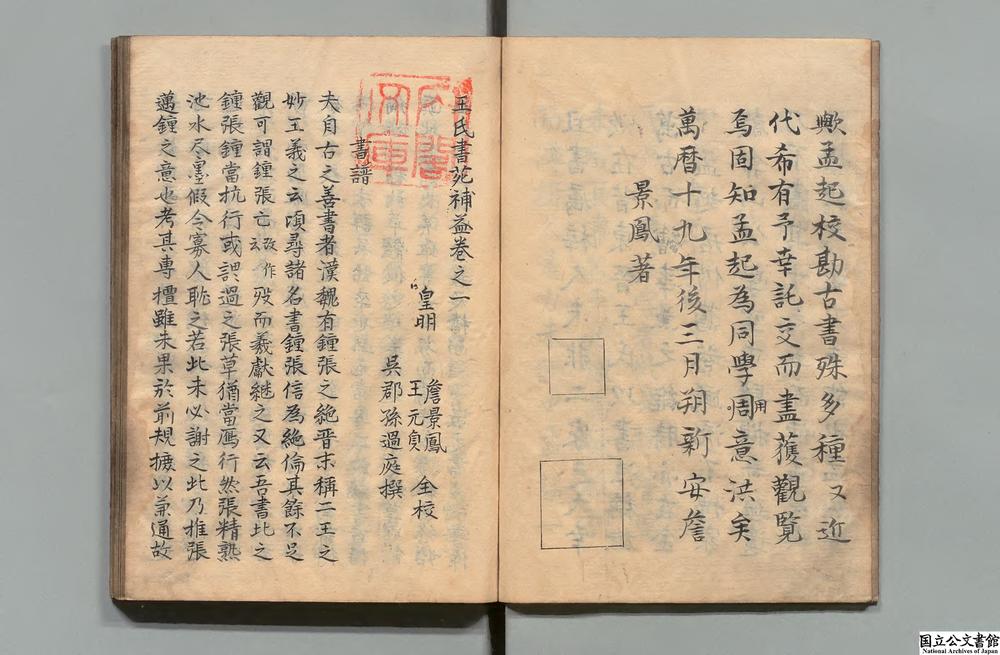 歟孟起校勘古書殊多種又近
代希有予幸託交而盡獲觀覧
焉固知孟起為同學周意洪矣
用
萬曆十九年後三月朔新安詹
景鳳著
王氏書苑補益卷之一
皇明
詹景鳳
王元貞
仝校
吳郡孫過庭撰
書譜
夫自古之善書者漢魏有鍾張之絶晋末稱二王之
妙王羲之云頃尋諸名書鍾張信為絶倫其餘不足
觀可謂鍾張亡
云
改作
歿而羲獻継之又云吾書比之
鍾張鍾當抗行或謂過之張草猶當鴈行然張精熟
池水尽墨假令寡人耽之若此未必謝之此乃推張
邁鍾之意也考其專擅雖未果於前規摭以兼通故
国立公文書館
National Archives of Japan